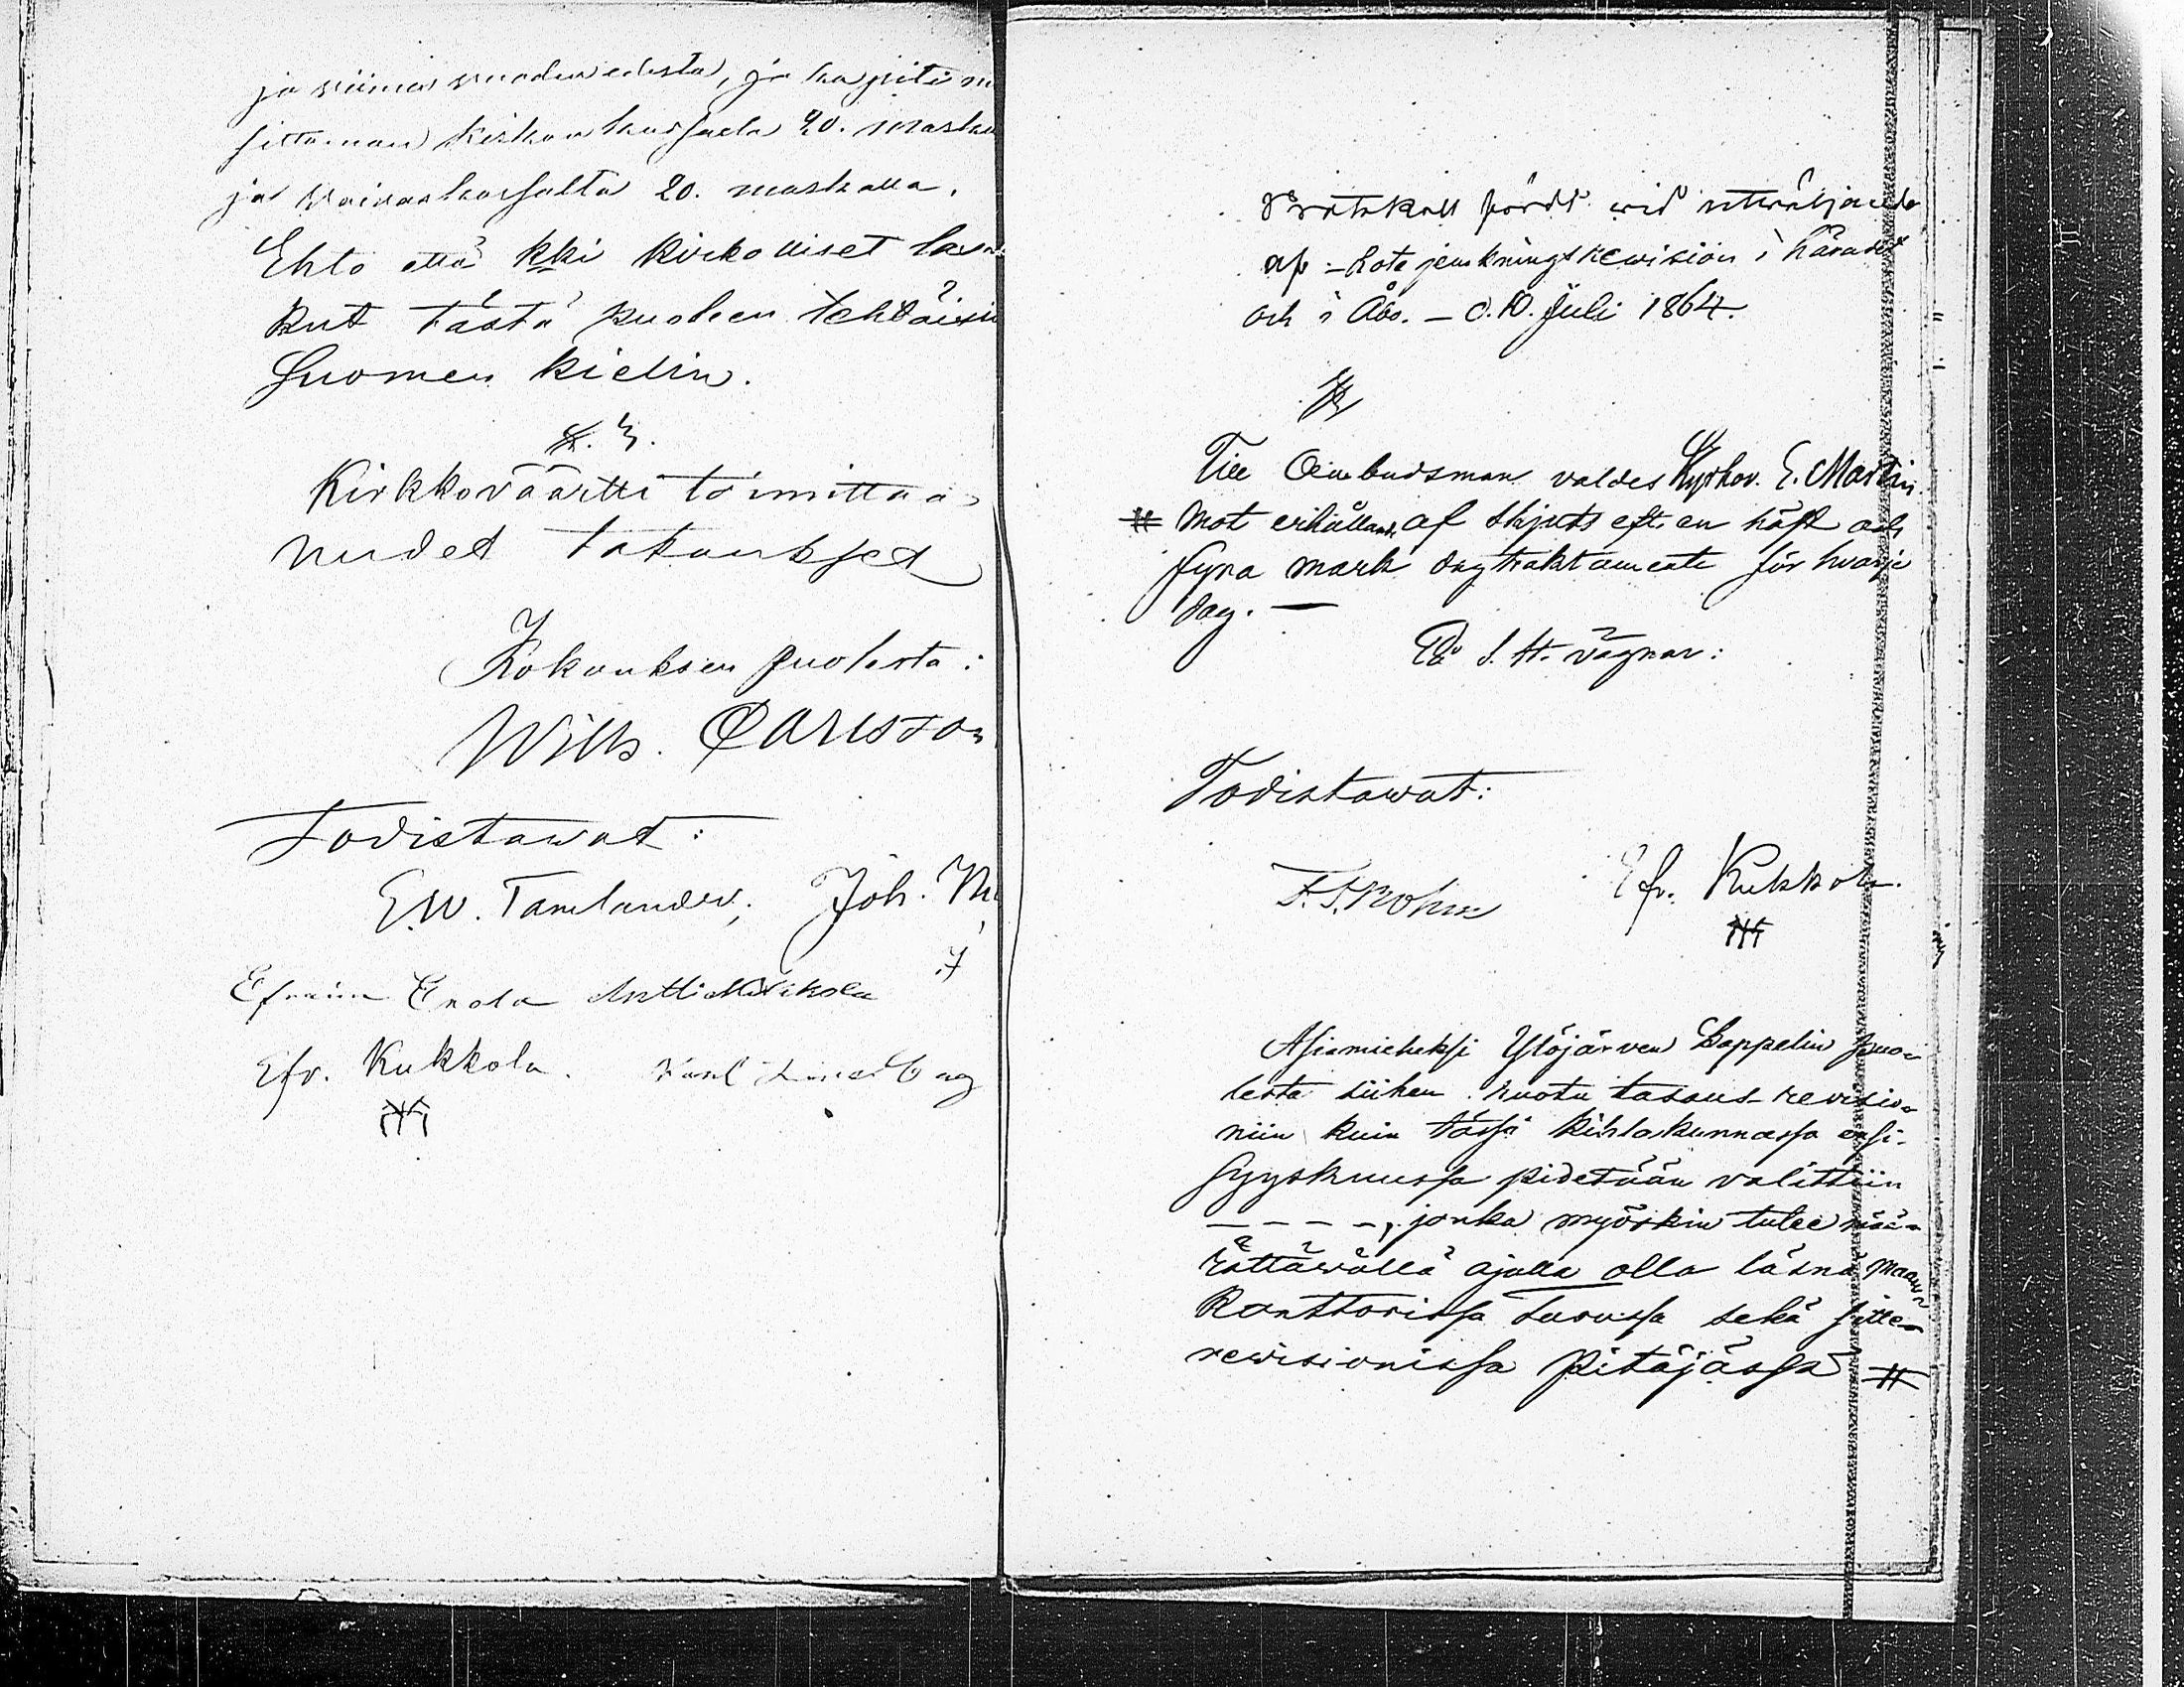 ja viimes vuoden edestä, ja
kirkon kassasta 20. markka
ja Vaivaskassalta 20. markalla.
Ehto että kki kirkolliset las
kut tästä puoleen tehtäisiin
Suomen kielin.
§. 3.
Kirkkoväärtti toimittaa
nudet takaukset
Kokouksen puolesta:
Wilh. Carlsson
Todistawat:
E.W. Tamlander, Joh. M
Efraim Enola Antti Mikkola
Efr. Kukkola. Karl
Protokoll fördt wid utwäljande
af - Rotejemkningsrevision i häradet
och i Åbo. - d. 10. Juli 1864.
Till Ombudsman valdes Kyrkov. E. Martin
# Mot erhållande af skjuts efter en häst och
fyra mark dagtraktamente för hvarje
dag. —
Todistawat:
Efr. Kukkola.
Asiamieheksi Ylöjärven Cappelin puo-
lesta siihen ruotu tasaus-revisio-
niin kuin tässä kihlakunnassa ensi-
Syyskuussa pidetään valittiin
– – – –, jonka myöskin tulee mää-
rättäwällä ajalla olla läsnä Maan
Konttorissa Turussa sekä sitte-
rewisionissa Pitäjässä #